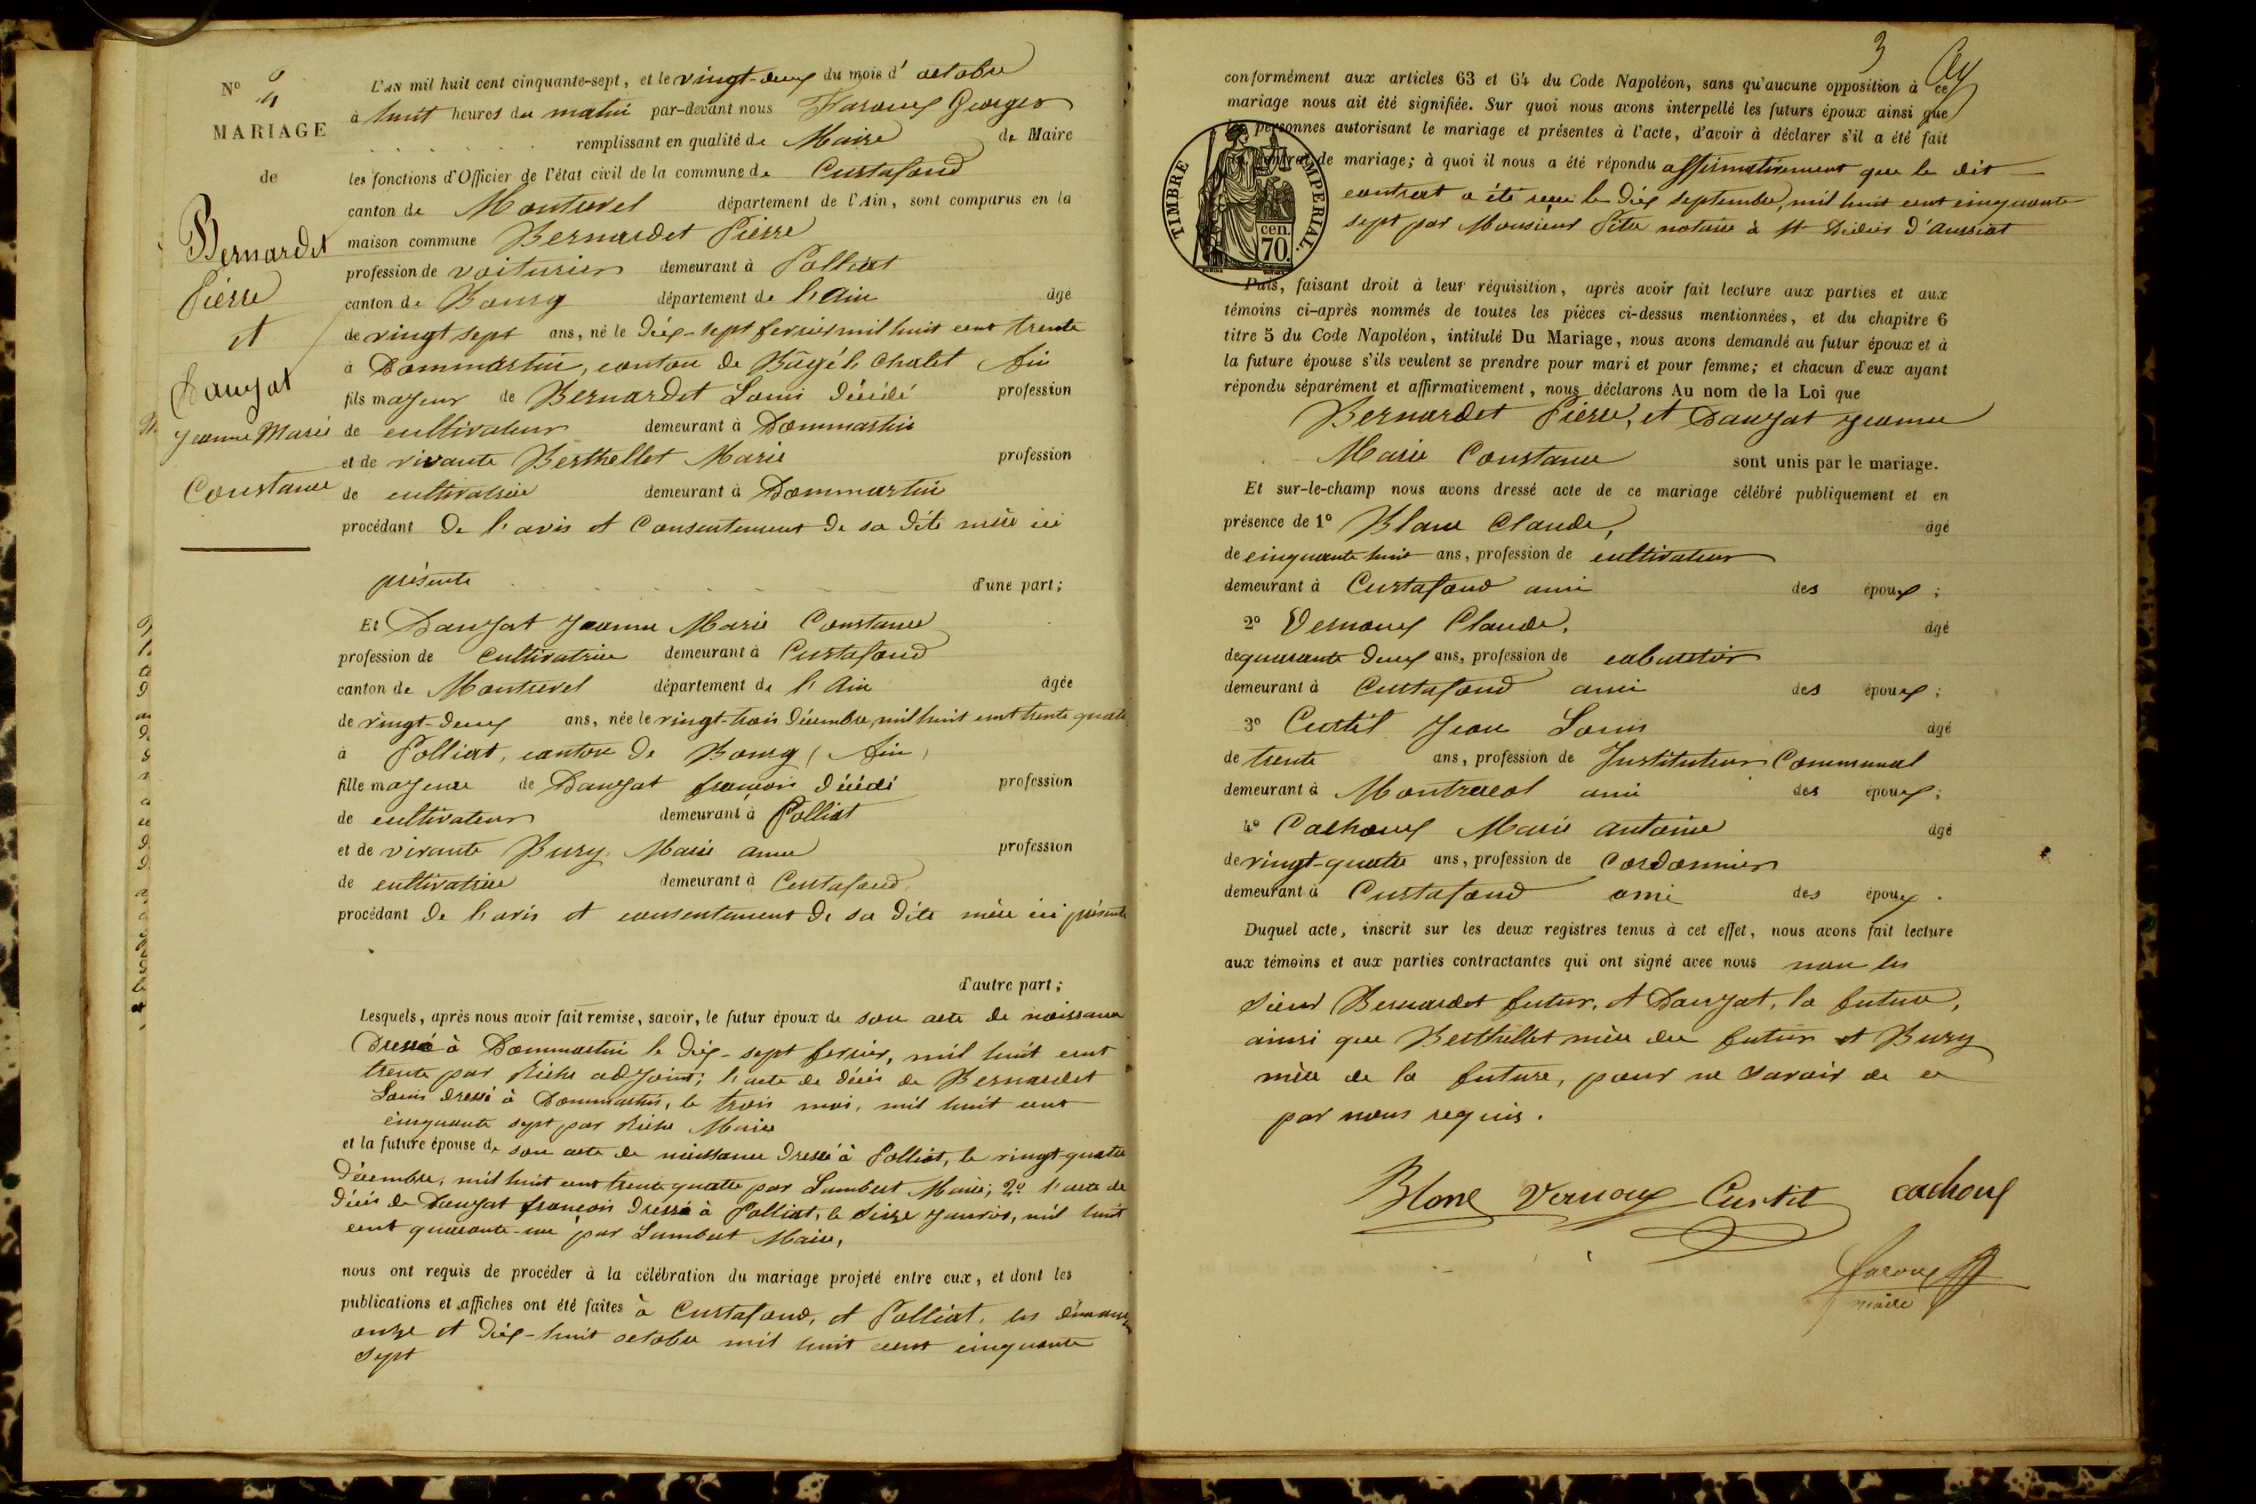 Nº 4
MARIAGE
de
Bernardet
Pierre
et
Danjat
Jeanne Marie
Constance
L'AN mil huit cent cinquante-sept, et le vingt-deux du mois d' octobre
à huit heures du matin par-devant nous Georges
remplissant en qualité de Maire de Maire
les fonctions d'Officier de l'état civil de la commune de Curtafond
canton de Montrevel département de l'Ain, sont comparus en la
maison commune Bernardet Pierre
profession de voiturier demeurant à Polliat
canton de Bourg département de l'Ain âgé
de vingt sept ans, né le dix-sept fevrier mil huit cent trente
à Dommartin, canton de Bagé le Chatel Ain
fils majeur de Bernardet Louis décédé profession
de cultivateur demeurant à Dommartin
et de vivante Berthellet Marie profession
de cultivatrice demeurant à Dommartin
procédant De l'avis et consentement de sa dite mère ici
présente d'une part;
Et Danjat Jeanne Marie Constance
profession de cultivatrice demeurant à Curtafond
canton de Montrevel département de l'Ain âgée
de vingt-deux ans, née le vingt-trois décembre, mil huit cent trente quatre
à Polliat, canton de Bourg (Ain)
fille majeure de Danjat françois décédé profession
de cultivateur demeurant à Polliat
et de vivante Bury Marie anne profession
de cultivatrice demeurant à Curtafond
procédant de l'avis et consentement de sa dite mère ici présente
d'autre part;
Lesquels, après nous avoir fait remise, savoir, le futur époux de son acte de naissance
Dressé à Dommartin le dix-sept fevrier, mil huit cent
trente par Riche adjoint; l'acte de décès de Bernardet
Louis dressé à Dommartin, le trois mai, mil huit cent
cinquante sept par Riche Maire
et la future épouse de son acte de naissance dressé à Polliat, le vingt-quatre
décembre, mil huit cent trente quatre par Lambert Maire; 2º l'acte de
décès de Danjat françois dressé à Polliat, le seize janvier, mil huit
cent quarante-un par Lambert Maire,
nous ont requis de procéder à la célébration du mariage projeté entre eux, et dont les
publications et affiches ont été faites à Curtafond, et Polliat, les dimanches
onze et dix-huit octobre mil huit cent cinquante
sept
3
conformément aux articles 63 et 64 du Code Napoléon, sans qu'aucune opposition à ce
mariage nous ait été signifiée. Sur quoi nous avons interpellé les futurs époux ainsi que
personnes autorisant le mariage et présentes à l'acte, d'avoir à déclarer s'il a été fait
contrat de mariage; à quoi il nous a été répondu affirmativement que le dit
contrat a été reçu le dix septembre, mil huit cent cinquante
sept par Monsieur Pite notaire à St Didier d'Aussiat
TIMBRE IMPERIAL.
cen.
70.
Puis, faisant droit à leur réquisition, après avoir fait lecture aux parties et aux
témoins ci-après nommés de toutes les pièces ci-dessus mentionnées, et du chapitre 6
titre 5 du Code Napoléon, intitulé Du Mariage, nous avons demandé au futur époux et à
la future épouse s'ils veulent se prendre pour mari et pour femme; et chacun d'eux ayant
répondu séparément et affirmativement, nous déclarons Au nom de la Loi que
Bernardet Pierre, et Danjat Jeanne
Marie Constance sont unis par le mariage.
Et sur-le-champ nous avons dressé acte de ce mariage célébré publiquement et en
présence de 1º Blanc Claude, âgé
de cinquante huit ans, profession de cultivateur
demeurant à Curtafond ami des époux ;
2º Vernoux Claude, âgé
de quarante deux ans, profession de cabaretier
demeurant à Curtafond ami des époux ;
3º Curtil Jean Louis âgé
de trente ans, profession de Instituteur Communal
demeurant à Montracol ami des époux ;
4º Cachoux Marie Antoine âgé
de vingt-quatre ans, profession de cordonnier
demeurant à Curtafond ami des époux .
Duquel acte, inscrit sur les deux registres tenus à cet effet, nous avons fait lecture
aux témoins et aux parties contractantes qui ont signé avec nous non les
sieur Bernardet futur, et Danjat, la future,
ainsi que Berthellet mère du futur et Bury
mère de la future, pour ne savoir de ce
par nous requis.
Blanc Vernoux Curtil cachoux
maire